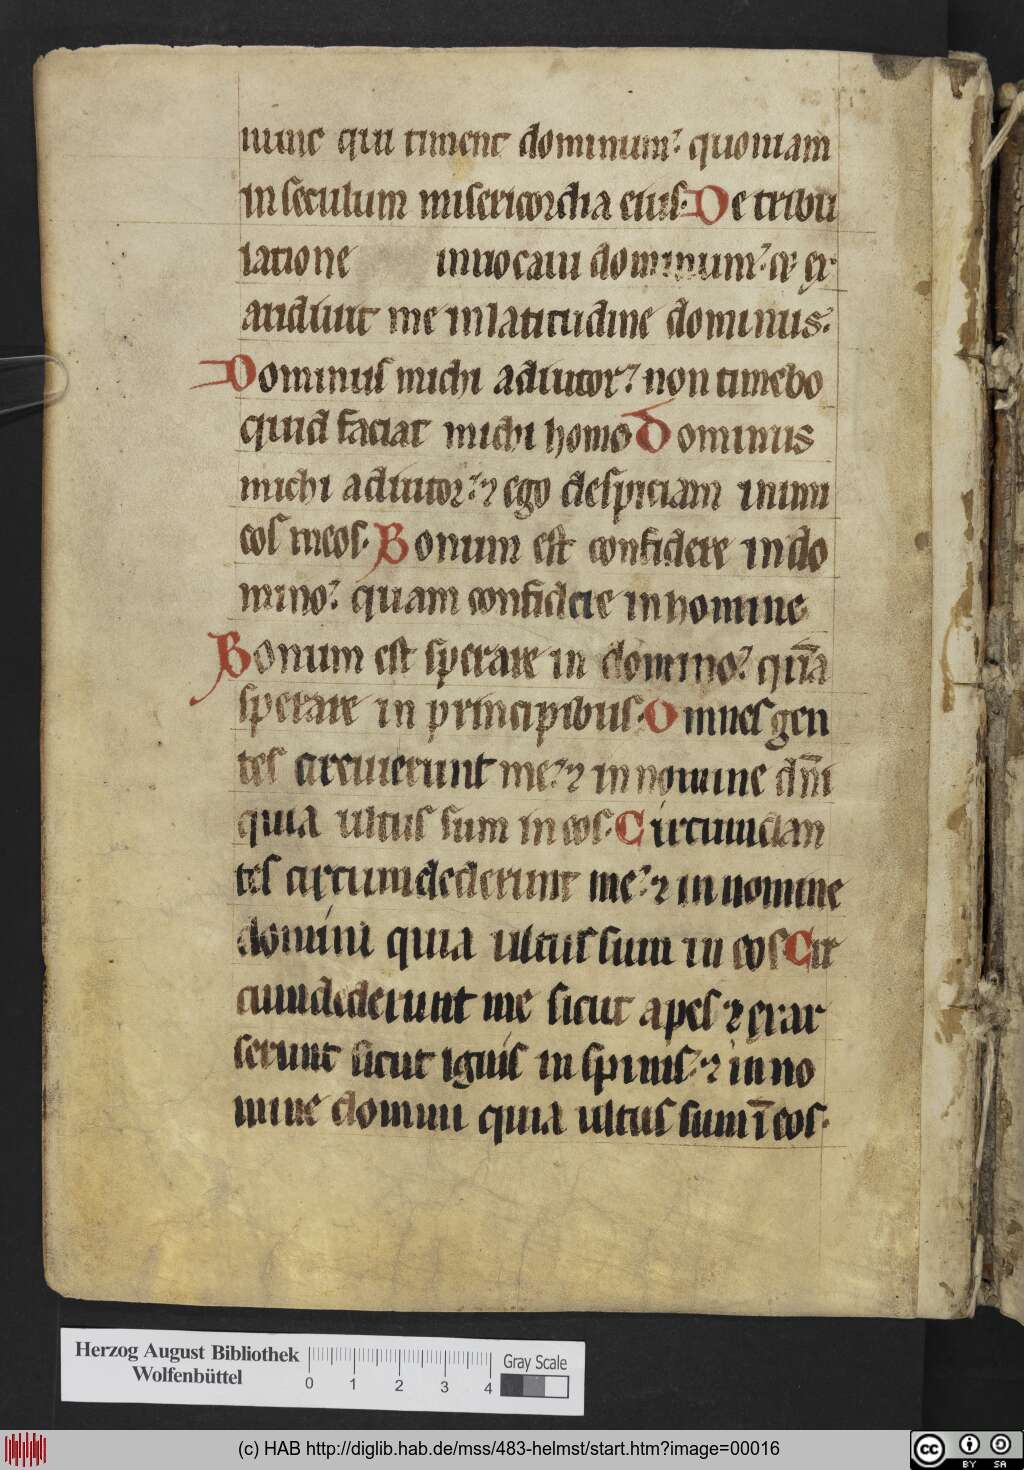 nunc qui timent dominum? quoniam
in seculum misericordia eius. De tribu
latione inuocaui dominum? et ex
audiuit me in latitudine dominus.
Dominus michi adiutor? non timebo
quid faciat michi homo Dominus
michi adiutor? ⁊ ego despiciam inimi
cos meos. Bonum est confidere in do
mino? quam confidere in homine
Bonum est sperare in domino? qua̅
sperare in principibus. Omnes gen
tes circuierunt me? ⁊ in nomine dn̅i
quia ultus sum in eos. Circumdan
tes circumdederunt me? ⁊ in nomine
domini quia ultus sum in eos Cir
cumdederunt me sicut apes ⁊ exar
serunt sicut ignis in spinis? ⁊ in no
mine domini quia ultus sum i̅ eos.
Herzog August Bibliothek
Wolfenbüttel
0 1 2 3 4
Gray Scale
(c) HAB http://diglib.hab.de/mss/483-helmst/start.htm?image=00016
cc BY SA